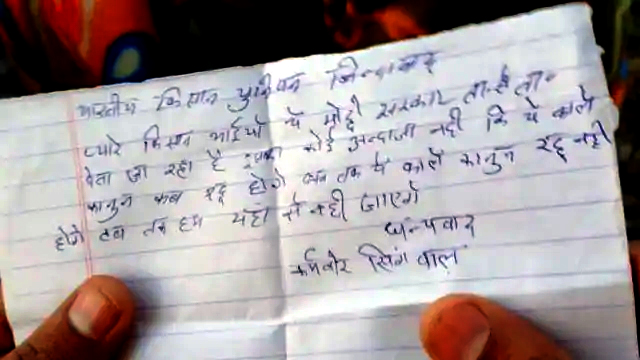 भारतीय किसान युनियन जिन्दाबाद
प्यारे किसान भाईयों ये मोदी सरकार तारीख ता-
देता जा रहा है इसका कोई अन्दाजा नही कि ये काले
कानुन कब रद्द होगे जब तक ये काले कानुन रद्द नही
होगे तब तक हम यहां से नही जाएगे
धन्यवाद
कर्मवीर सिंग